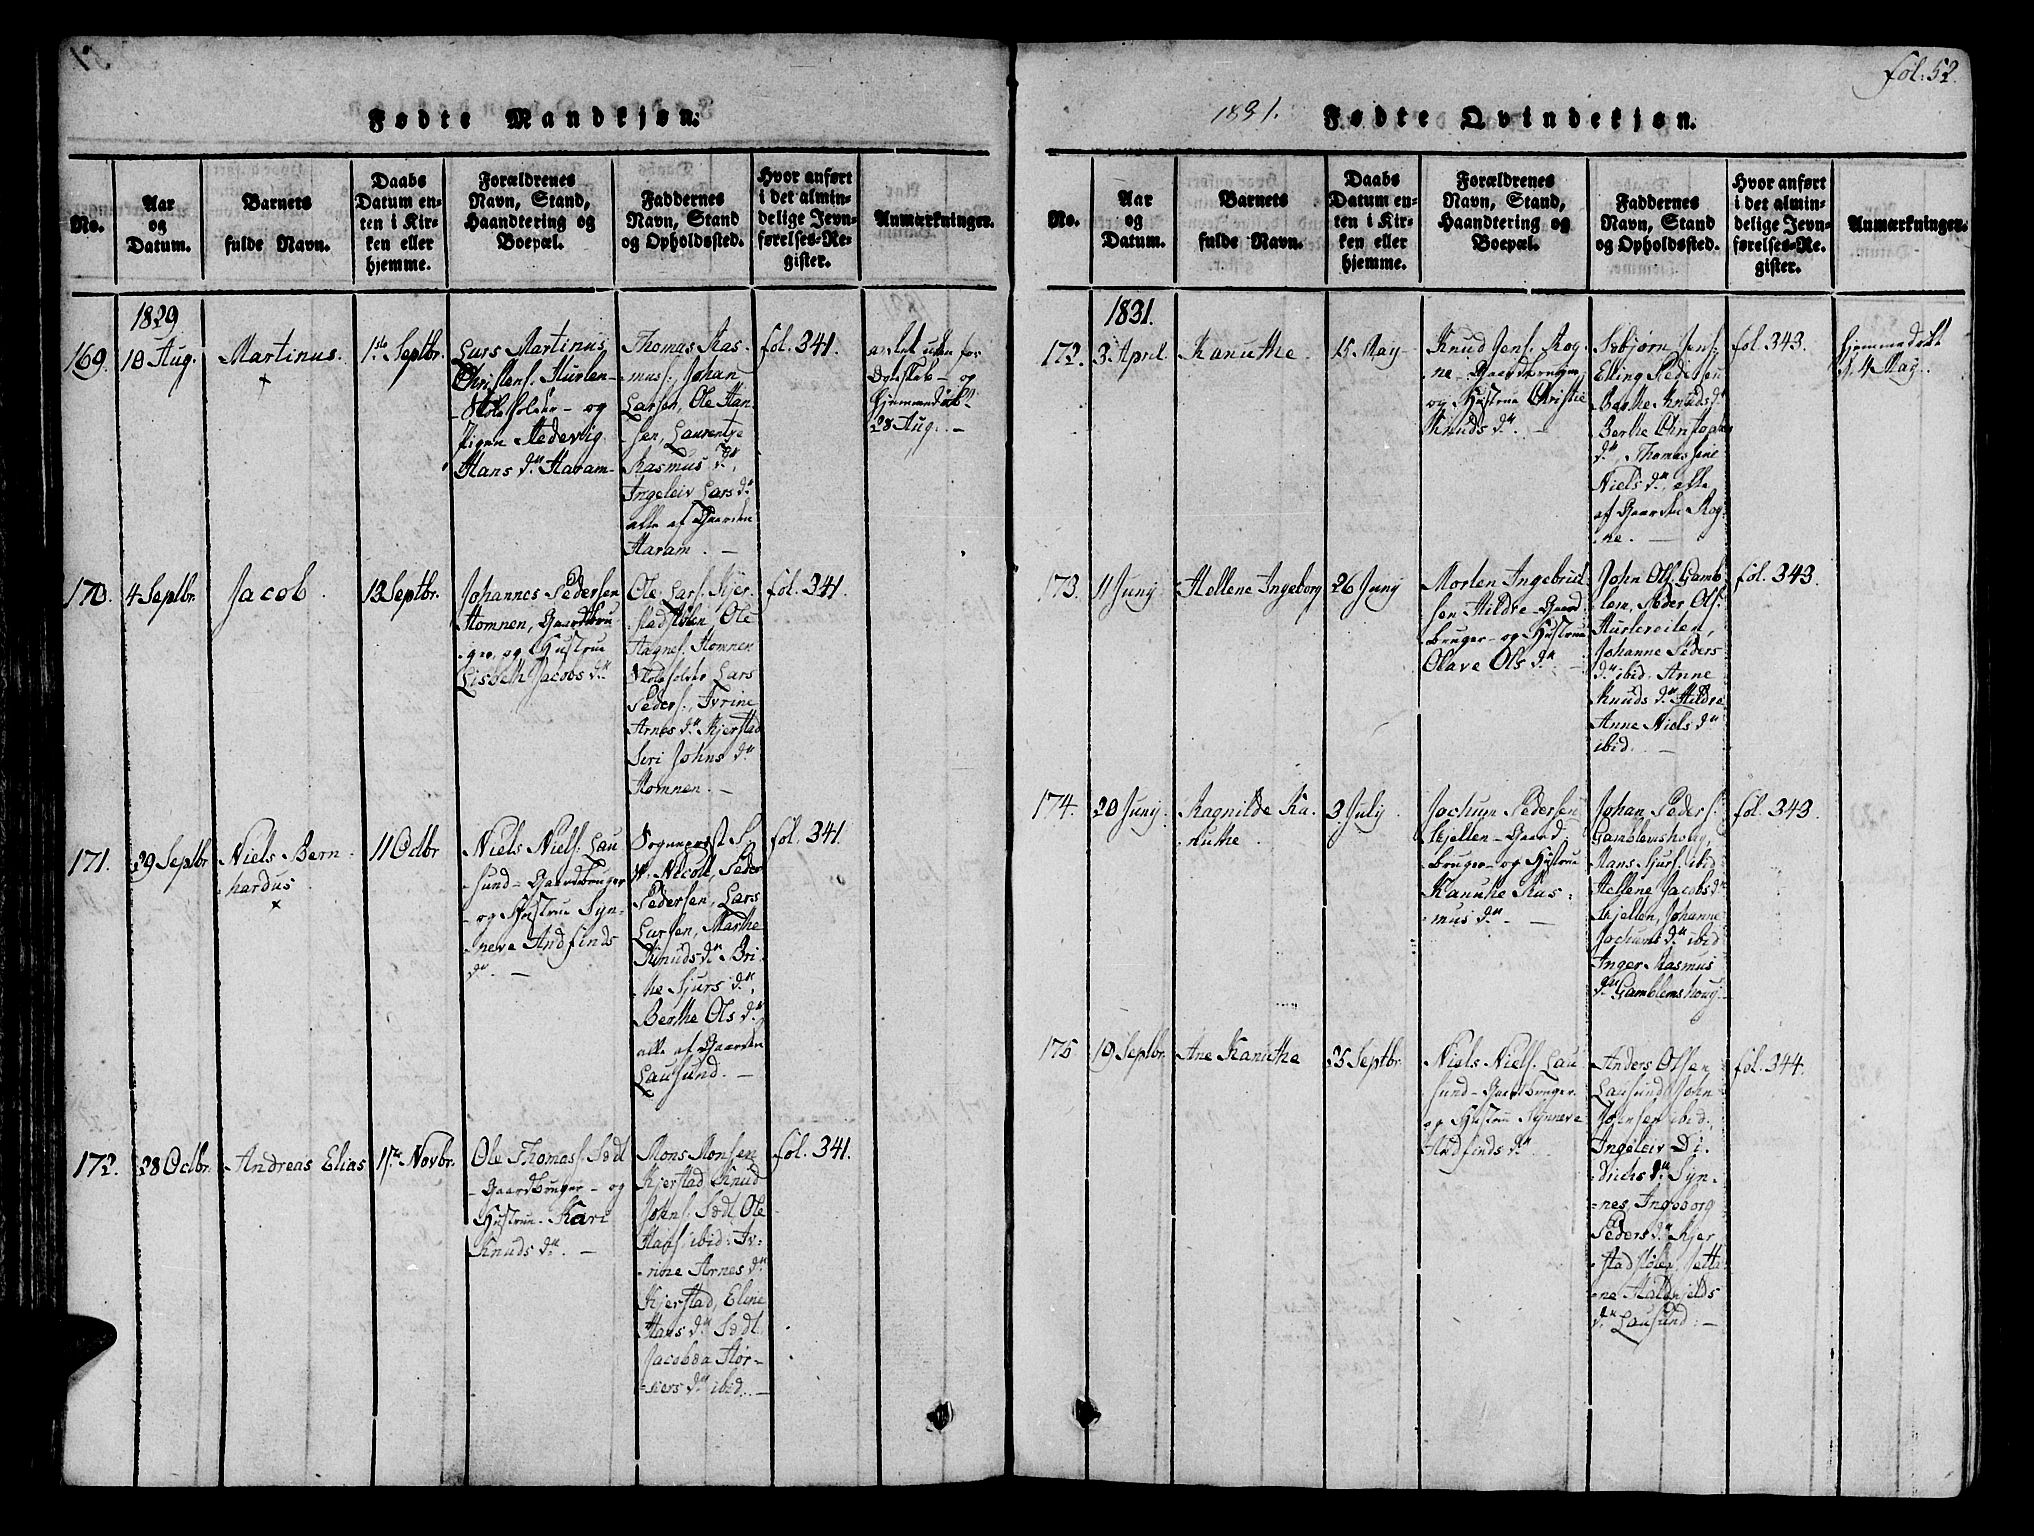 Fødte Mandkjøn.
No.
Aar
og
Datum.
Barnets
fulde Navn.
Daabs
Datum en-
ten i Kir-
ken eller
hjemme.
Forældrenes
Navn, Stand,
Haandtering og
Boepæl.
Faddernes
Navn, Stand
og Opholdssted.
Hvor anført
i det almin-
delige Jevn-
førelses-Re-
gister.
Anmærkninger.
1829
169.
18 Aug.
Martinus.
1ste Septbr.
Lars Martinus
Christens. Hurlen-
og
Pigen Hedevig
Hans dr Haram-
Thomas Ras-
mus., Johan
Larsen, Ole Han-
sen, Laurentze
Rasmus dr,
Ingeleiv Lars dr
alle af Gaarden
Haram. -
fol. 341.
avlet uden for
Ægteskab - og
hjemmedøbt
28 Aug. -
170.
4 Septbr.
Jacob.
13 Septbr.
Johannes Pedersen
Homnen, Gaardbru-
ger og Hustrue
Lisbeth Jacobs dr
Ole Lars. Kjer-
stadstølen Ole
Hagnes. Homnen
Lars
Peders., Ivrine
Arnes dr Kjerstad
Siri Johns dr
Homnen. -
fol. 341.
171.
29 Septbr.
Niels Bern-
hardus
11 Octbr
Niels Niels. Lau-
sund - Gaardbruger
- og Hustrue Syn-
neve Andfinds
dr. -
Sogneprest S.
H. Nicoll, Peder
Pedersen, Lars
Larsen, Marthe
Knuds dr Bri-
the Sjurs dr,
Berthe Ols dr
alle af Gaarden
Lausund. -
fol. 341.
172.
28 Octbr.
Andreas Elias
15de Novbr.
Ole Thomas. Sædl
- Gaardbruger - og
Hustrue Kari
Knuds dr. -
Mons Monsen
Kjerstad Knud
Johns. Sædl Ole
Hans. ibid. Iv-
rine Arnes dr
Kjerstad, Eline
Hans dr Sædl
Jacobæa Stor-
kers dr ibid. -
fol. 341.
fol. 52.
1831.
Fødte Qvindekjøn.
No.
Aar
og
Datum.
Barnets
fulde Navn.
Daabs
Datum en-
ten i Kir-
ken eller
hjemme.
Forældrenes
Navn, Stand,
Haandtering og
Boepæl.
Faddernes
Navn, Stand
og Opholdssted.
Hvor anført
i det almin-
delige Jevn-
førelses-Re-
gister.
Anmærkninger.
1831.
172.
3 April.
Kanuthe.
15 May
Knud Jens. Rog-
ne - Gaardbruger
og Hustrue Christie
Knuds dr. -
Asbjørn Jens.
Elling Pedersen
Berthe Knuds dr
Berthe Christophers
dr, Thomassine
Niels dr, alle
af Gaarden Rog-
ne. -
fol. 343.
hjemmedøbt
d. 4 May.
173.
11 Juny
Hellene Ingeborg
26 Juny
Morten Ingebrid-
sen Hildre - Gaard-
bruger - og Hustrue
Olave Ols dr. -
John Ols. Gamb-
lem, Peder Ols.
Hurlereiten,
Johanne Peders
dr ibid. Anne
Knuds dr Hildre
Anne Niels dr
ibid. -
fol. 343.
174.
20 Juny
Ragnilde Ka-
nuthe
3 July
Jochum Pedersen
Skjellen - Gaard-
bruger - og Hustrue
Kanuthe Ras-
mus dr. -
Johan Peders.
Gamblemshoug
Hans Sjurs. ibid
Hellene Jacobs dr
Skjellen, Johanne
Jochums dr ibid
Inger Rasmus
dr Gamblemshoug
fol. 343.
175
19 Septbr.
Ane Kanuthe
25 Septbr.
Niels Niels. Lau-
sund - Gaardbruger
og Hustrue Synneve
Andfinds dr. -
Anders Olsen
Lausund, John
Iversen ibid.
Ingeleiv Di-
dricks dr Syn-
nes, Ingeborg
Peders dr Kjer-
stadstølen, Jetta-
ne Haldkjelds
dr Lausund. -
fol. 344.